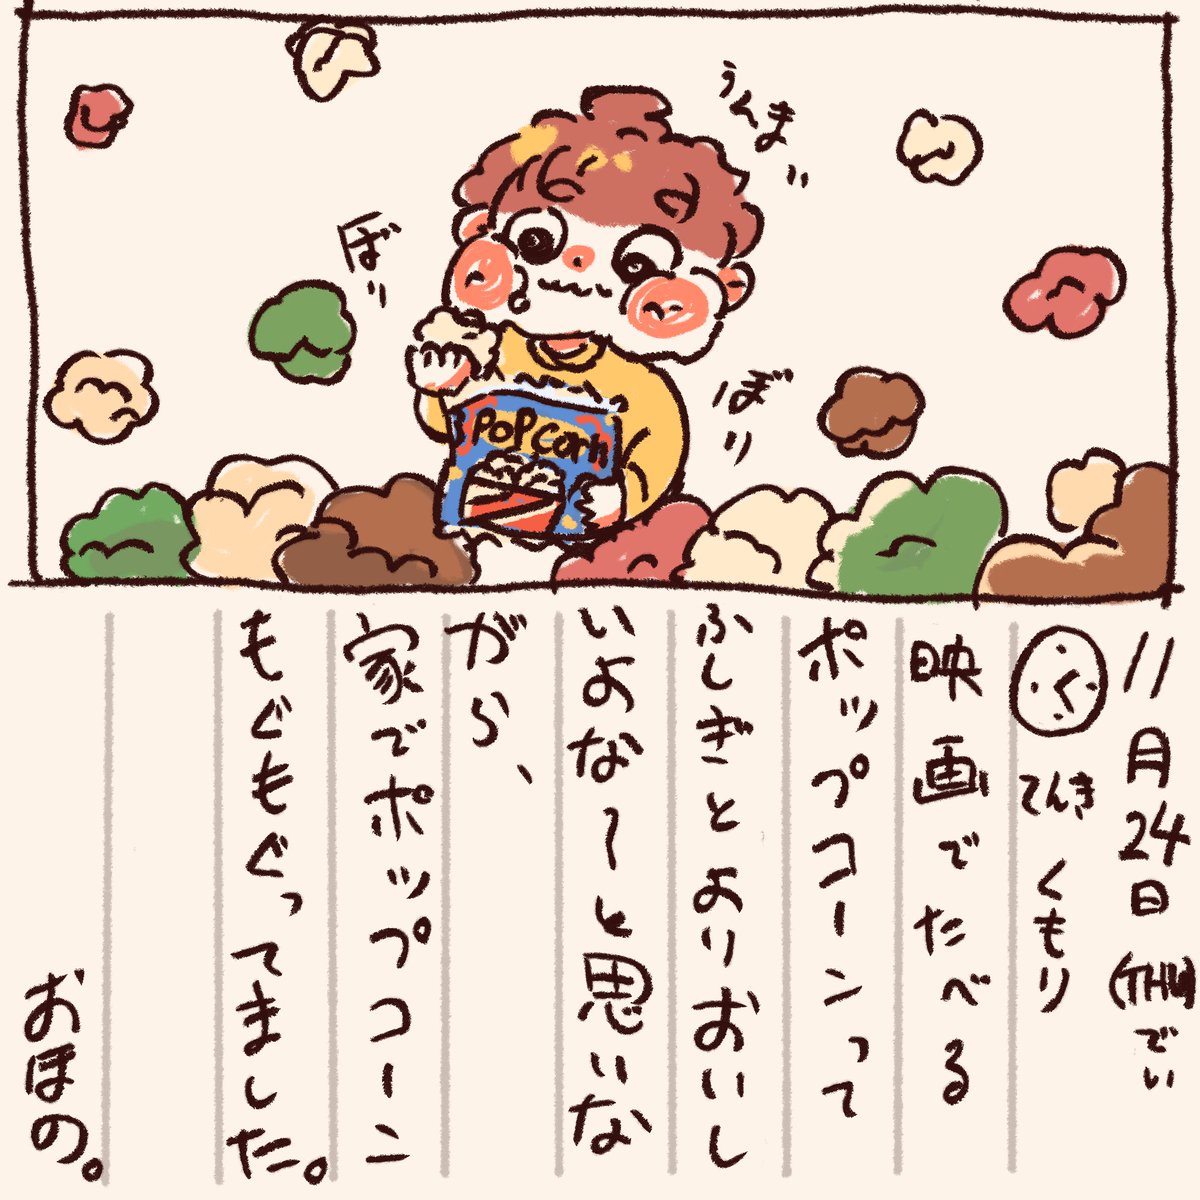 うんま
ボリ
ボリ
POPCorn
11月24日(THU)でい
てんき くもり
映画でたべる
ポップコーンって
ふしぎとよりおいし
いよな〜と思いな
がら、
家でポップコーン
もぐもぐってました。
おほの。